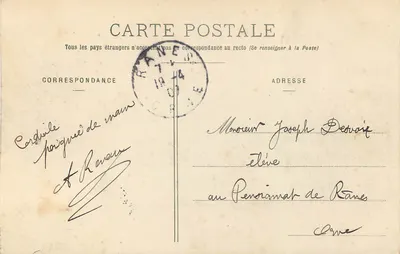 CARTE POSTALE
Tous les pays étrangers n'acceptent pas la correspondance au recto (Se renseigner à la Poste)
RANES
7
19-4
ORNE
CORRESPONDANCE
ADRESSE
Cordiale
poignée de main
A Renau
Monsieur Joseph
élève
au Pensionnat de Rânes
Orne